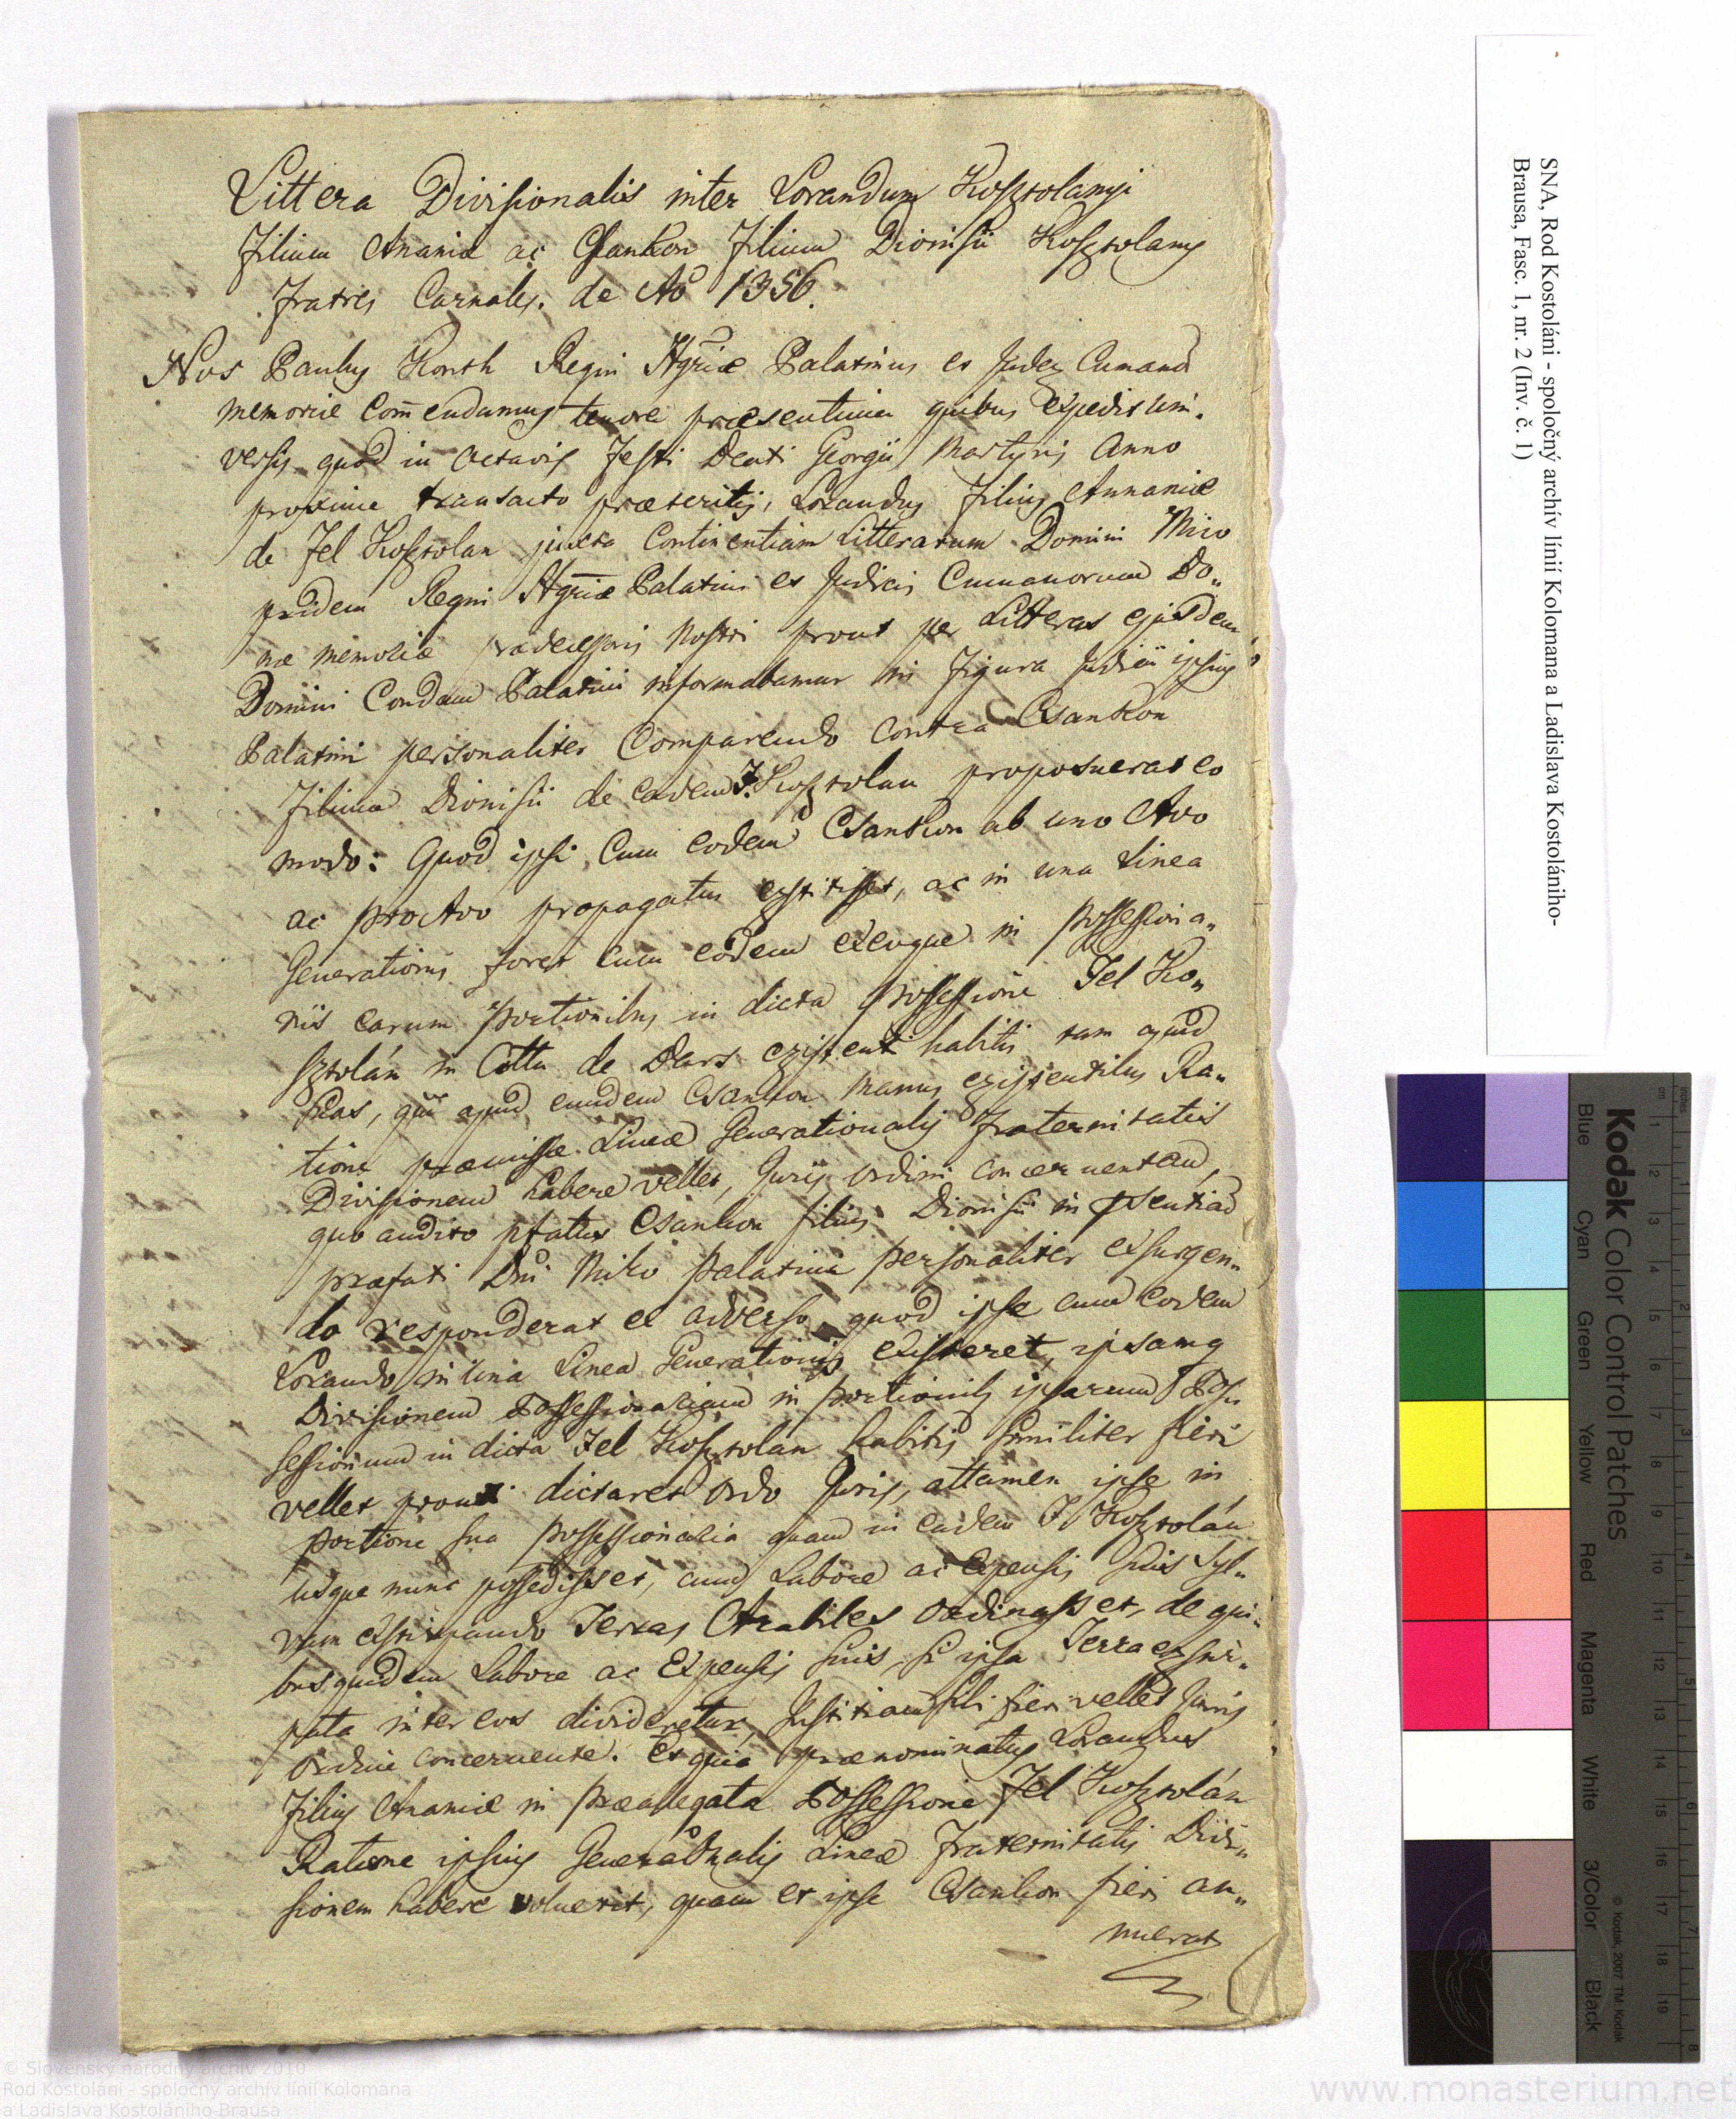 Littera Divisionalis inter Lorandum Kosztolanyi
Filium Ananiæ ac Csankon Filium Dionisii Kosztolany
Fratres Carnales. de Ao 1356.
Nos Paulus Konth Regni Hgriæ Palatinus et Judex Cumanor
memoriæ Com̄endamus tenore præsentium quibus expedit uni-
versis, quod in Octavis Festi Beati Georgii Martyris Anno
proxime transacto præteritis, Lorandus Filius Annaniæ
de Fel Kosztolan juxta Continentiam Litterarum Domini
pridem Regni Hgriæ Palatini et Judicis Cumanorum Bo„
næ memoriæ prædecessoris Nostri prout per Litteras ejusdem
Domini Condam Palatini informabamur in Figura Judicii ipsius
Palatini personaliter Comparendo Contra Csankon
Filium Dionisii de eadem F. Kosztolan proposuerat eo
modo: Quod ipse Cum eodem Csankon ab uno Avo
ac proAvo propagatus extitisset, ac in una Linea
Generationis foret cum eodem in possessiona„
riis earum portionibus in dicta possessione Fel Ko„
sztolán in Cottu de Bars existent habitis tam apud
suas, qua apud eundem Csankon manus existentibus Ra„
tione præmissæ Lineæ Generationalis Fraternitatis
Divisionem habere vellet, Juris ordine concernentem,
quo audito pfatus Csankon filius Dionisii in psentia
præfati Dni Miko Palatini personaliter exsurgen„
do responderat ex adverso, quod ipse cum eodem
Lorando in una Linea Generationis existeret, ipsamq
Divisionem Possessionariam in portionibs ipsarum Pos„
sessionum in dicta Fel Kosztolán habitis similiter fieri
vellet prout dictaret Ordo Juris, attamen ipse in
portione sua possessionaria quam in eadem F. Kosztolán
usque nunc possedisset, cum Labore ac Expensis suis Syl„
vam exstirpando Terras Arabiles ordinasset, de qui„
bus quidem Labore ac Expensis suis, si ipsa Terra exstir„
pata inter eos divideretur, Justitiam sibi fieri vellet Juris
ordine concernente. Et quia prænominatus Lorandus
Filius Ananiæ in præallegata Possessione Fel Kosztolán
Ratione ipsius Generationalis Lineæ Fraternitatis Divi„
sionem habere voluerit, quam et ipse Csankon fieri an„
nuerat
SNA, Rod Kostoláni - spoločný archív línií Kolomana a Ladislava Kostolániho-
Brausa, Fasc. 1, nr. 2 (Inv. č. 1)
Kodak Color Control Patches
© Kodak, 2007 TM: Kodak
Blue Cyan Green Yellow Red Magenta White 3/Color Black
inches 1 2 3 4 5 6 7 8
cm 1 2 3 4 5 6 7 8 9 10 11 12 13 14 15 16 17 18 19
© Slovenský národný archív 2010
Rod Kostoláni - spoločný archív línií Kolomana
a Ladislava Kostolániho-Brausa
www.monasterium.net